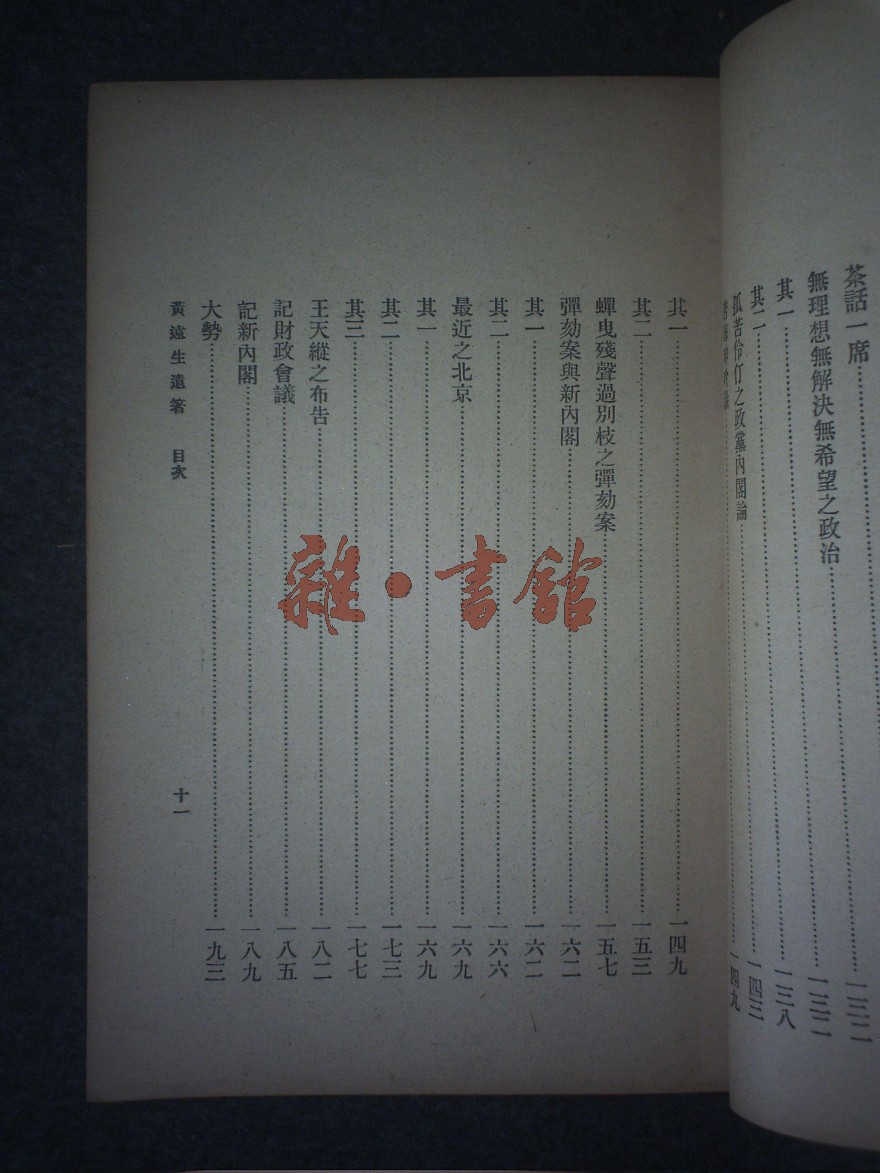 茶話一席……一三二
無理想無解決無希望之政治……一三二
其一……一三八
其二……一四三
孤苦伶仃之政黨內閣論……一四九
其一……一四九
其二……一五三
蟬曳殘聲過別枝之彈劾案……一五七
彈劾案與新內閣……一六二
其一……一六二
其二……一六六
最近之北京……一六九
其一……一六九
其二……一七三
其三……一七七
王天縱之布告……一八二
記財政會議……一八五
記新內閣……一八九
大勢……一九三
黃遠生遺箸 目次 十一
雜·書館